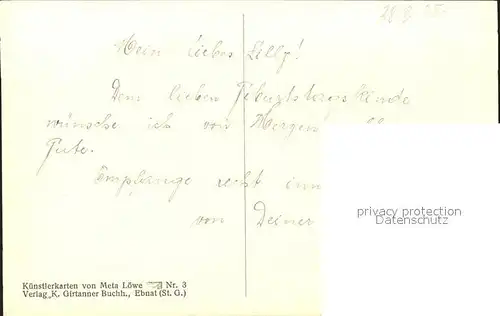 28. 9. 25.
Mein liebes Lilly!
Dem lieben Geburtstagskinde
wünsche ich von Herzen alles
Gute.
Empfange recht inn
von Deiner
privacy protection
Datenschutz
Künstlerkarten von Meta Löwe Nr. 3
Verlag K. Girtanner Buchh., Ebnat (St. G.)